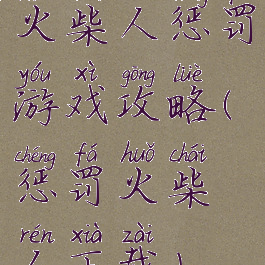 火柴人惩罚
yóu xì gōng lüè
游戏攻略(
chéng fá huǒ chái
惩罚火柴
rén xià zài
人下载)